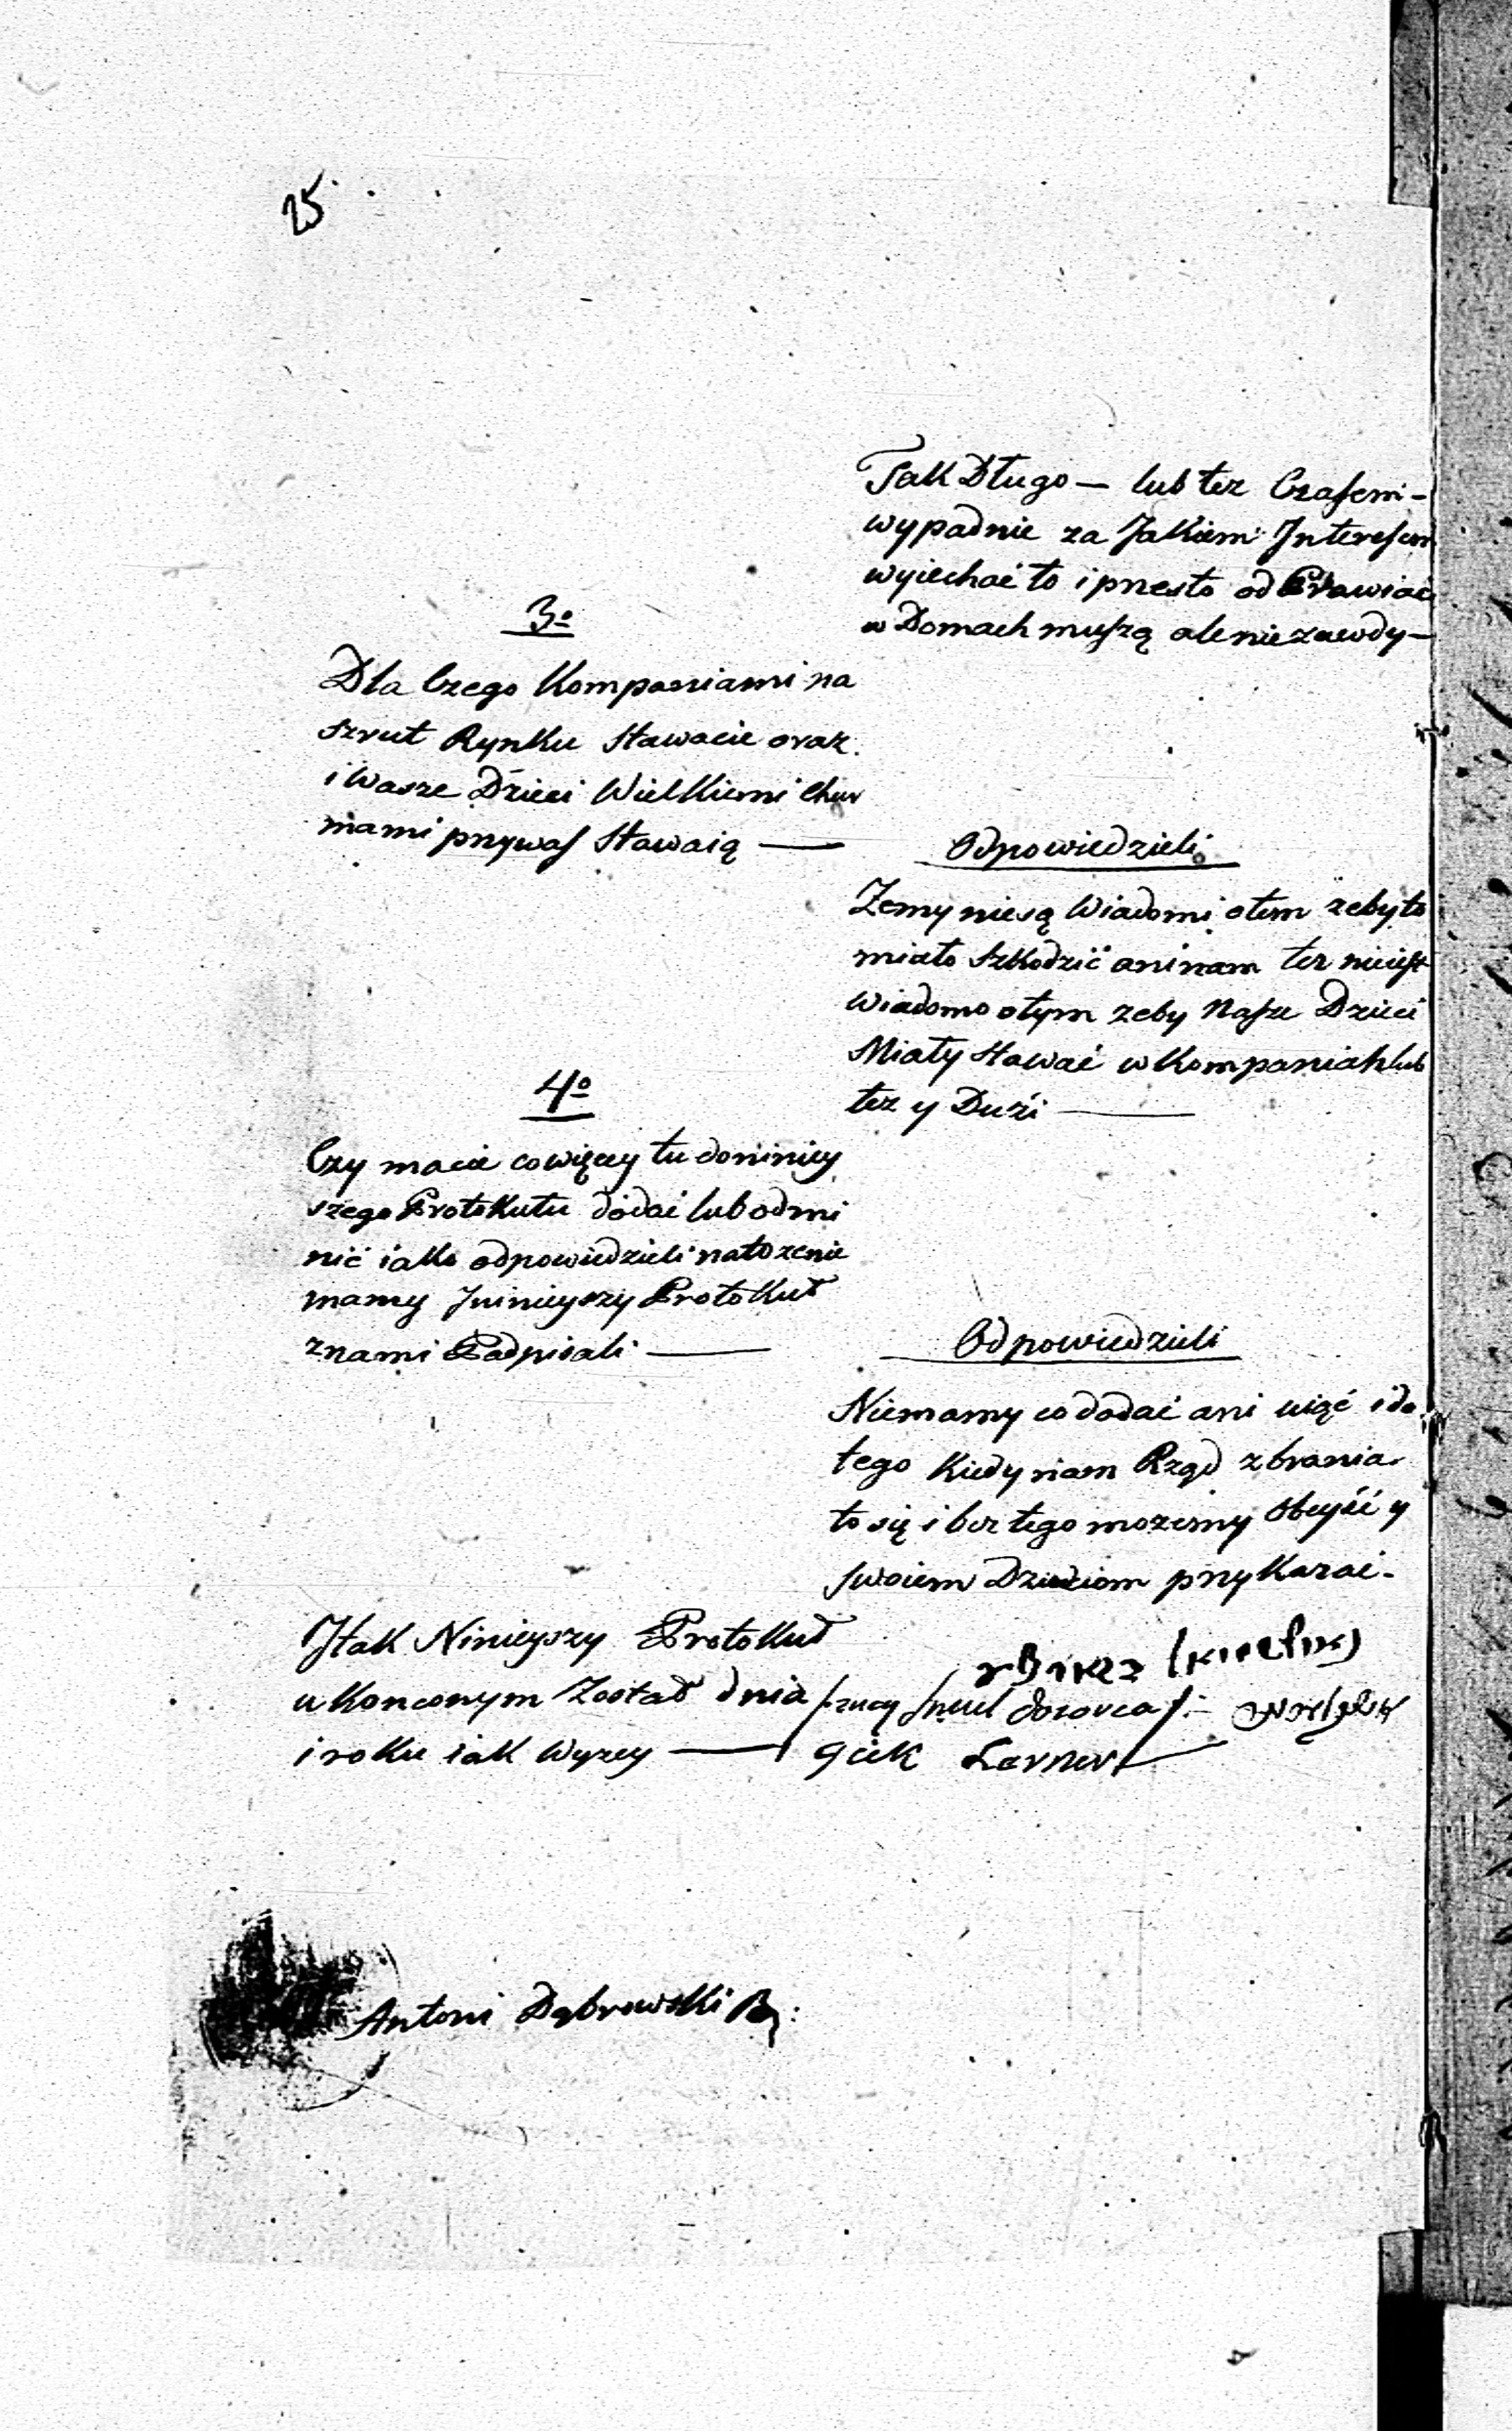 25
Tak Długo — lub też Czasem -
wypadnie za Jakiem Interesem
wyiechać to i presto od Prawiać
w Domach muszą ale nie zawdy —
3o
Dla Czego Kompaniami na
szrut Rynku stawacie oraz
i Wasze Dzieci Wielkiemi Chur
mami przy was Stawaią —
Odpowiedzieli
Zemy niesą Wiadomi otem zeby to
miało szkodzić ani nam tez nieiest
Wiadomo otym zeby Nasze Dzieci
Miały stawać w Kompaniah lub
tez y Duźi —
4o
Czy macie co więcey tu do niniey
szego Protokułu dodać lub odmi
nić iako odpowiedzieli natozenie
mamy Jninieyszy Protokuł
znami Podpisali —
Odpowiedzieli
Niemamy co dodać ani uiąć i do
tego Kiedy nam Rząd zbrania
to się i bez tego mozemy Obeyść y
swoiem Dzieciom przykazać -
Jtak Ninieyszy Protokuł
ukonconym Został dnia
i roku iak Wyzey —
dozorca
Lerner
Antoni Dąbrowski